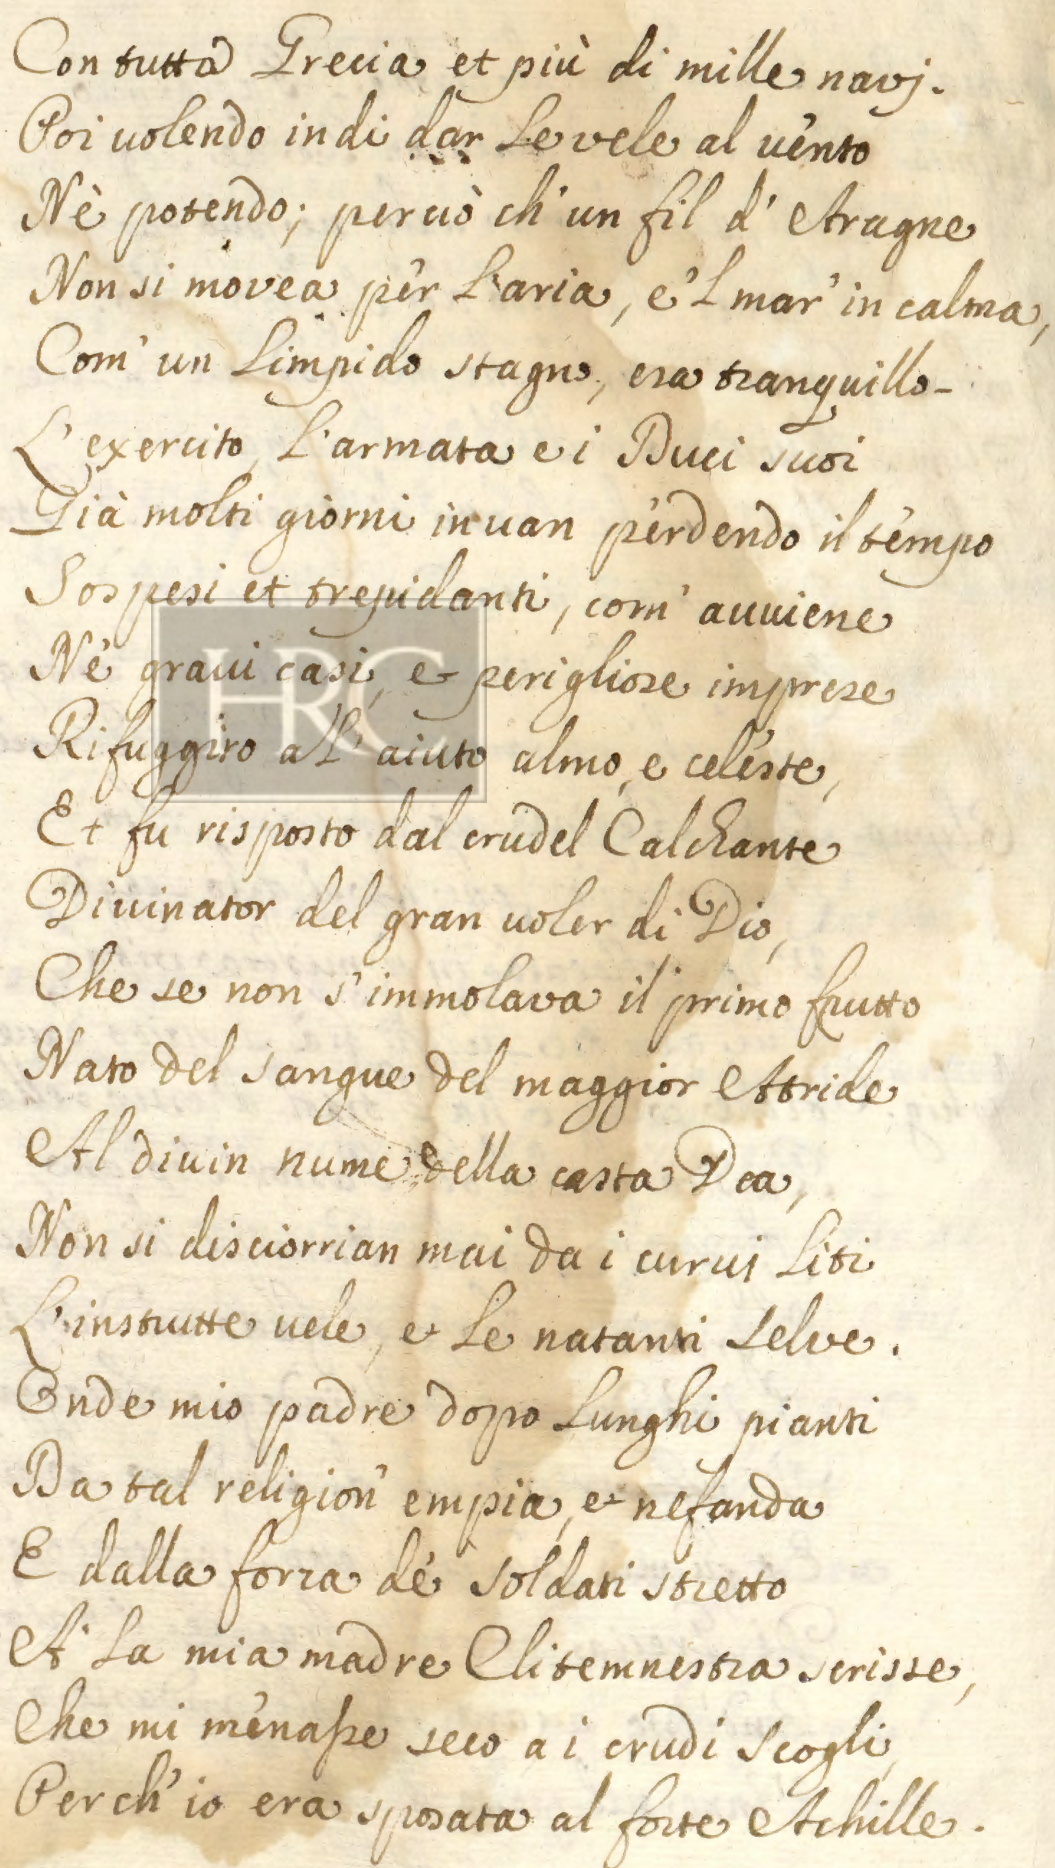 Con tutta Grecia et più di mille navj.
Poi uolendo indi dar le vele al uénto
Nè potendo; perciò ch'un fil d'Aragne
Non si movea pér l'aria, e'l mar' in calma,
Com' un limpido stagno, era tranquillo-
L'exercito, l'armata e i Duci suoi
Già molti giòrni in uan pérdendo il témpo
Sospesi et trepidanti, com' auuiene
Né graui casi, e perigliose imprese
Rifuggiro al'aiuto almo, e celéste,
Et fu risposto dal crudel Calchante
Diuinator del gran uoler di Dio,
Che se non s'immolava il primo frutto
Nato del sangue del maggior Atride
Al diuin nume della casta Dea,
Non si disciorrian mai da i curui liti
L'instrutte uele, e le natanti selve.
Onde mio padre dopo lunghi pianti
Da tal religion' empia, e nefanda
E dalla forza dé soldati stretto
A' la mia madre Clitemnestra scrisse,
Che mi ménasse seco a i crudi scogli,
Perch'io era sposata al forte Achille.
HRC